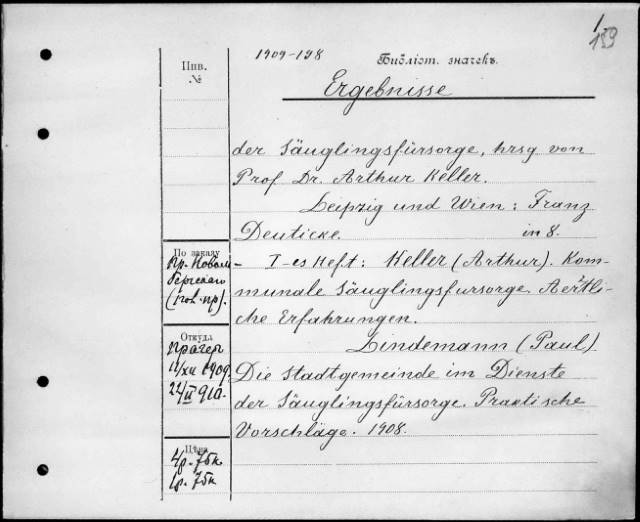 1
159
1909-198
Библіот. значекъ.
Инв.
№
Ergebnisse
der Säuglingsfürsorge, hrsg von
Prof Dr. Arthur Keller.
Leipzig und Wien: Franz
Deuticke. in 8.
По заказу
Пр.
I-es Heft: Keller (Arthur). Kom-
munale Säuglingsfursorge. Aerztli-
che Erfahrungen.
Lindemann (Paul)
Die Stadtgemeinde im Dienste
der Säuglingsfürsorge. Praktische
Vorschläge. 1908.
Откуда
Прагер
11/XII 1909
22/II 910.
Цѣна
4р.-75к
1р.-75к